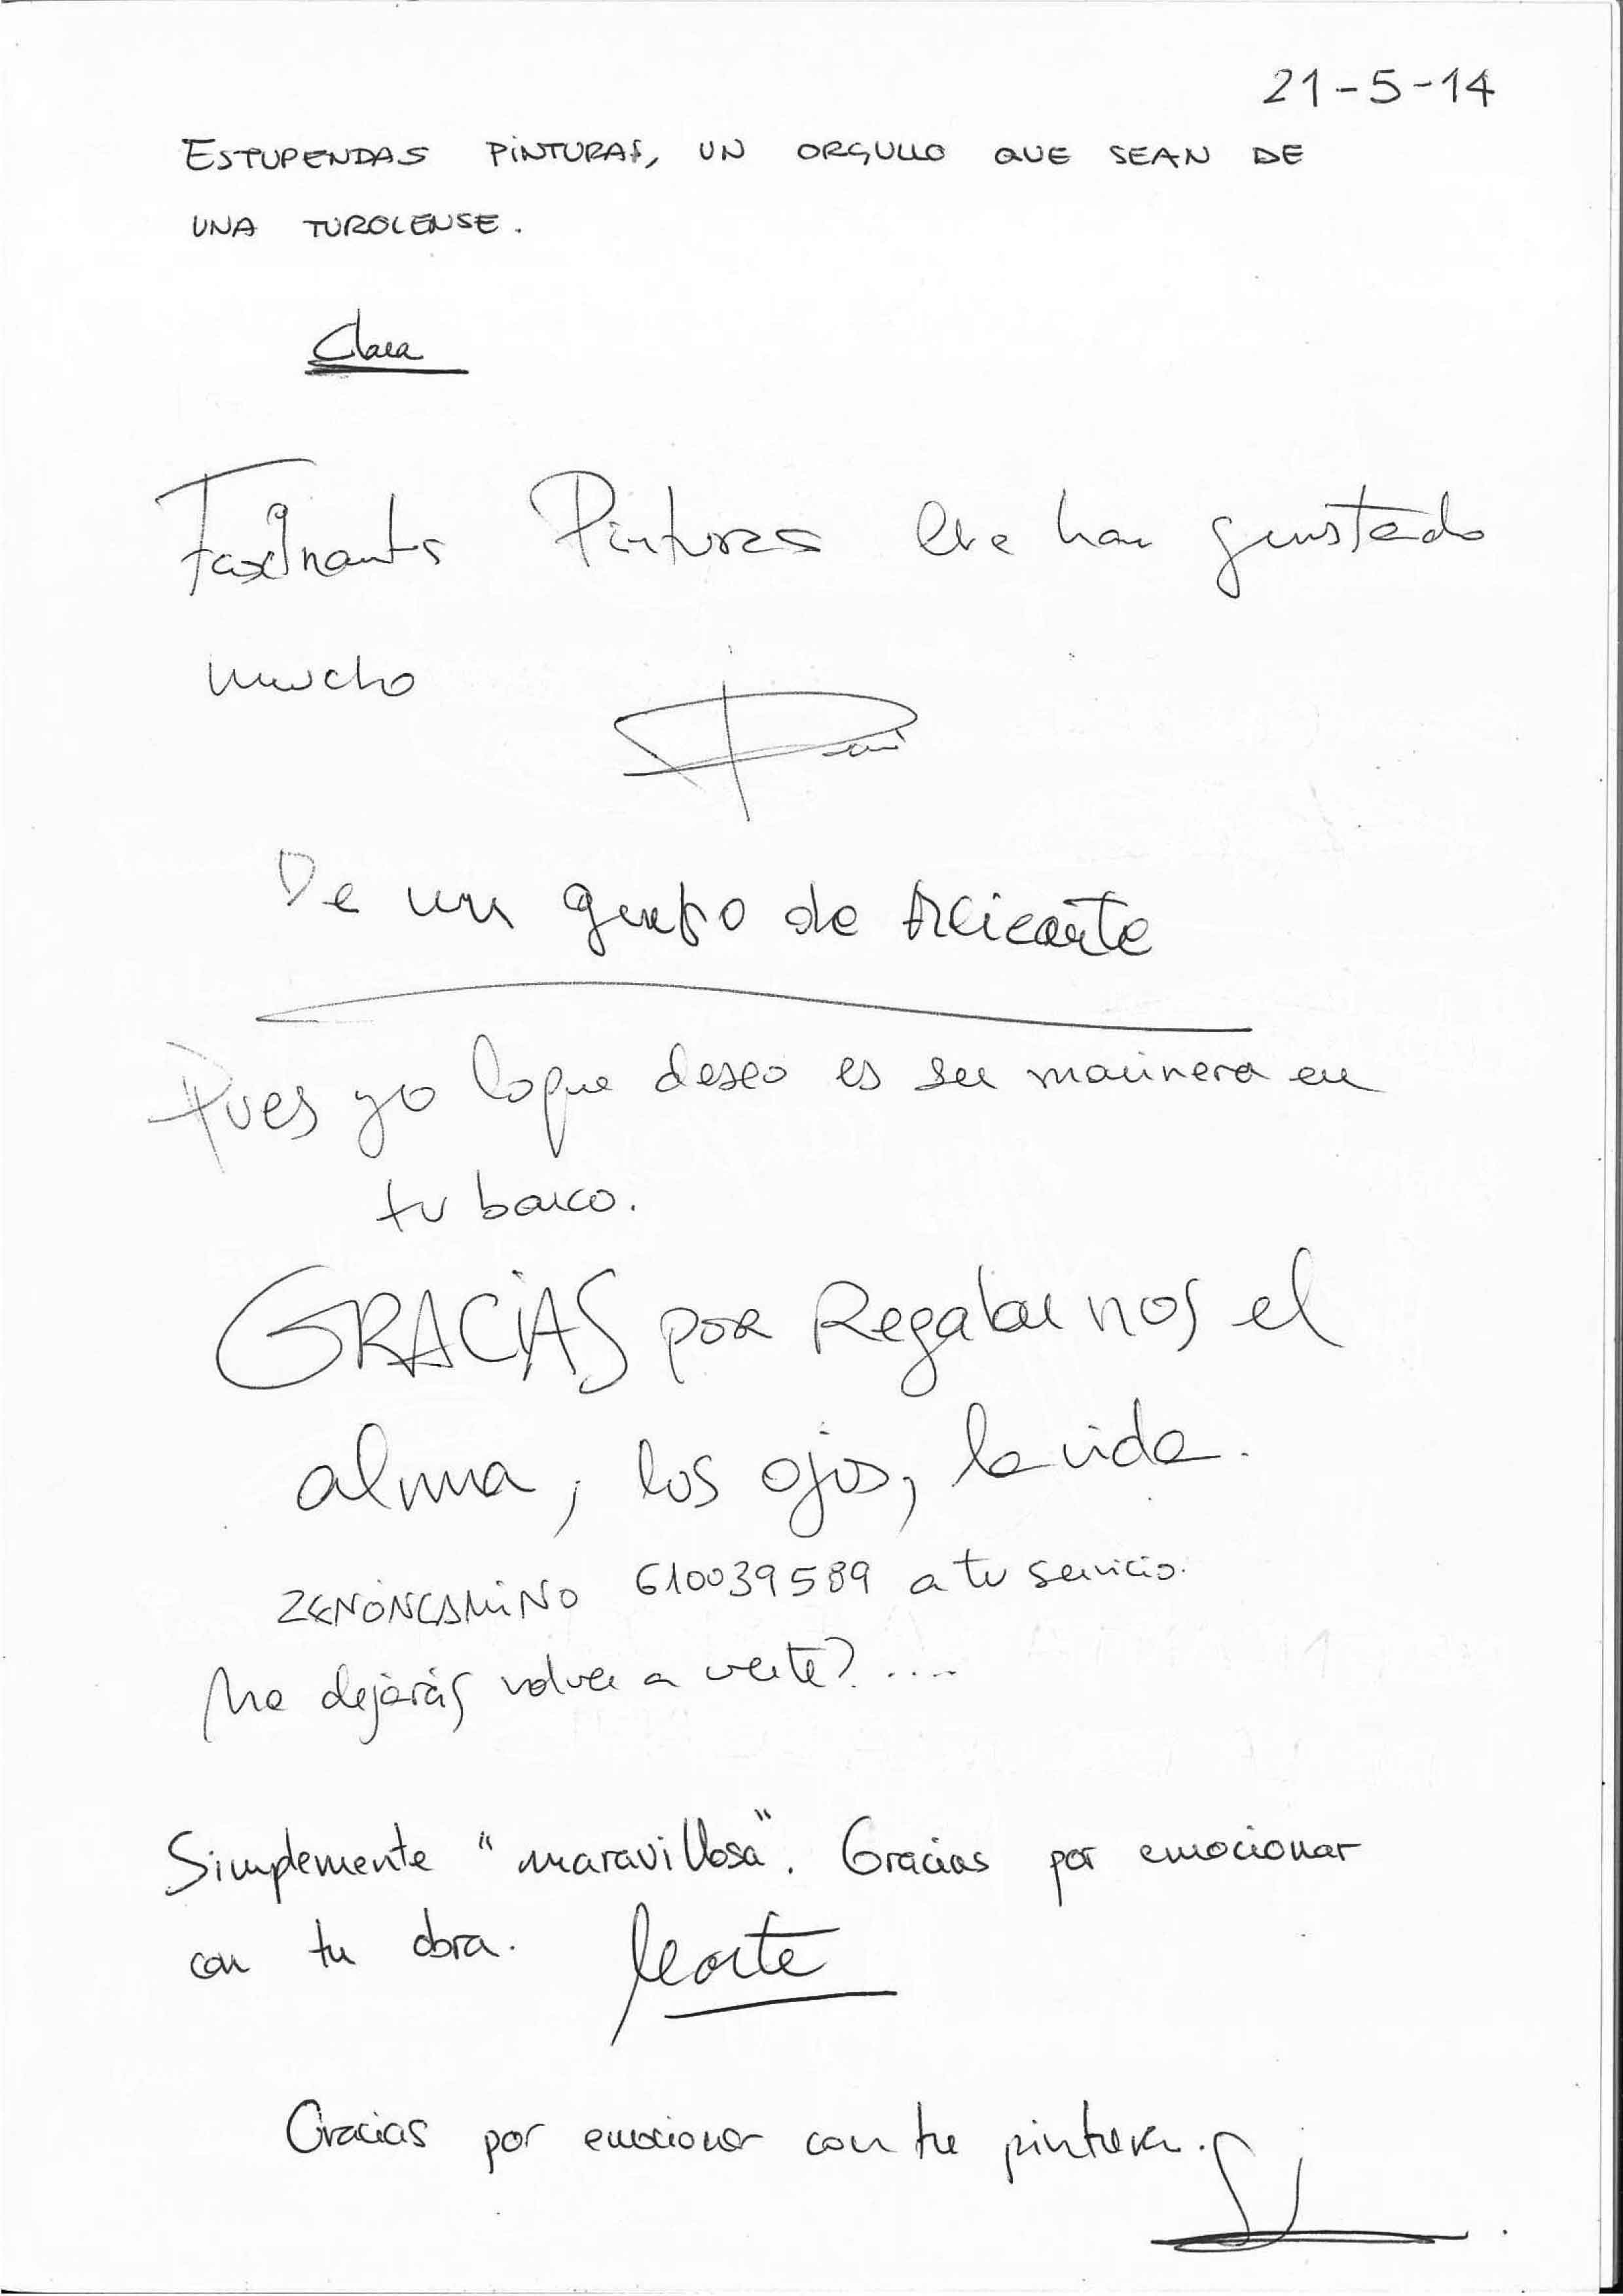 21-5-14
ESTUPENDAS PINTURAS, UN ORGULLO QUE SEAN DE
UNA TUROLENSE.
Clara
Fascinantes Pinturas Me han gustado
mucho
De un grupo de Alicante
Pues yo loque deseo es ser marinera en
tu barco.
GRACIAS por Regalarnos el
alma, los ojos, la vida.
ZENÓNCAMINO 610039589 a tu servicio.
Me dejarás volver a verte? ....
Simplemente "maravillosa". Gracias por emocionar
con tu obra.
Gracias por emocionar con tu pintura.